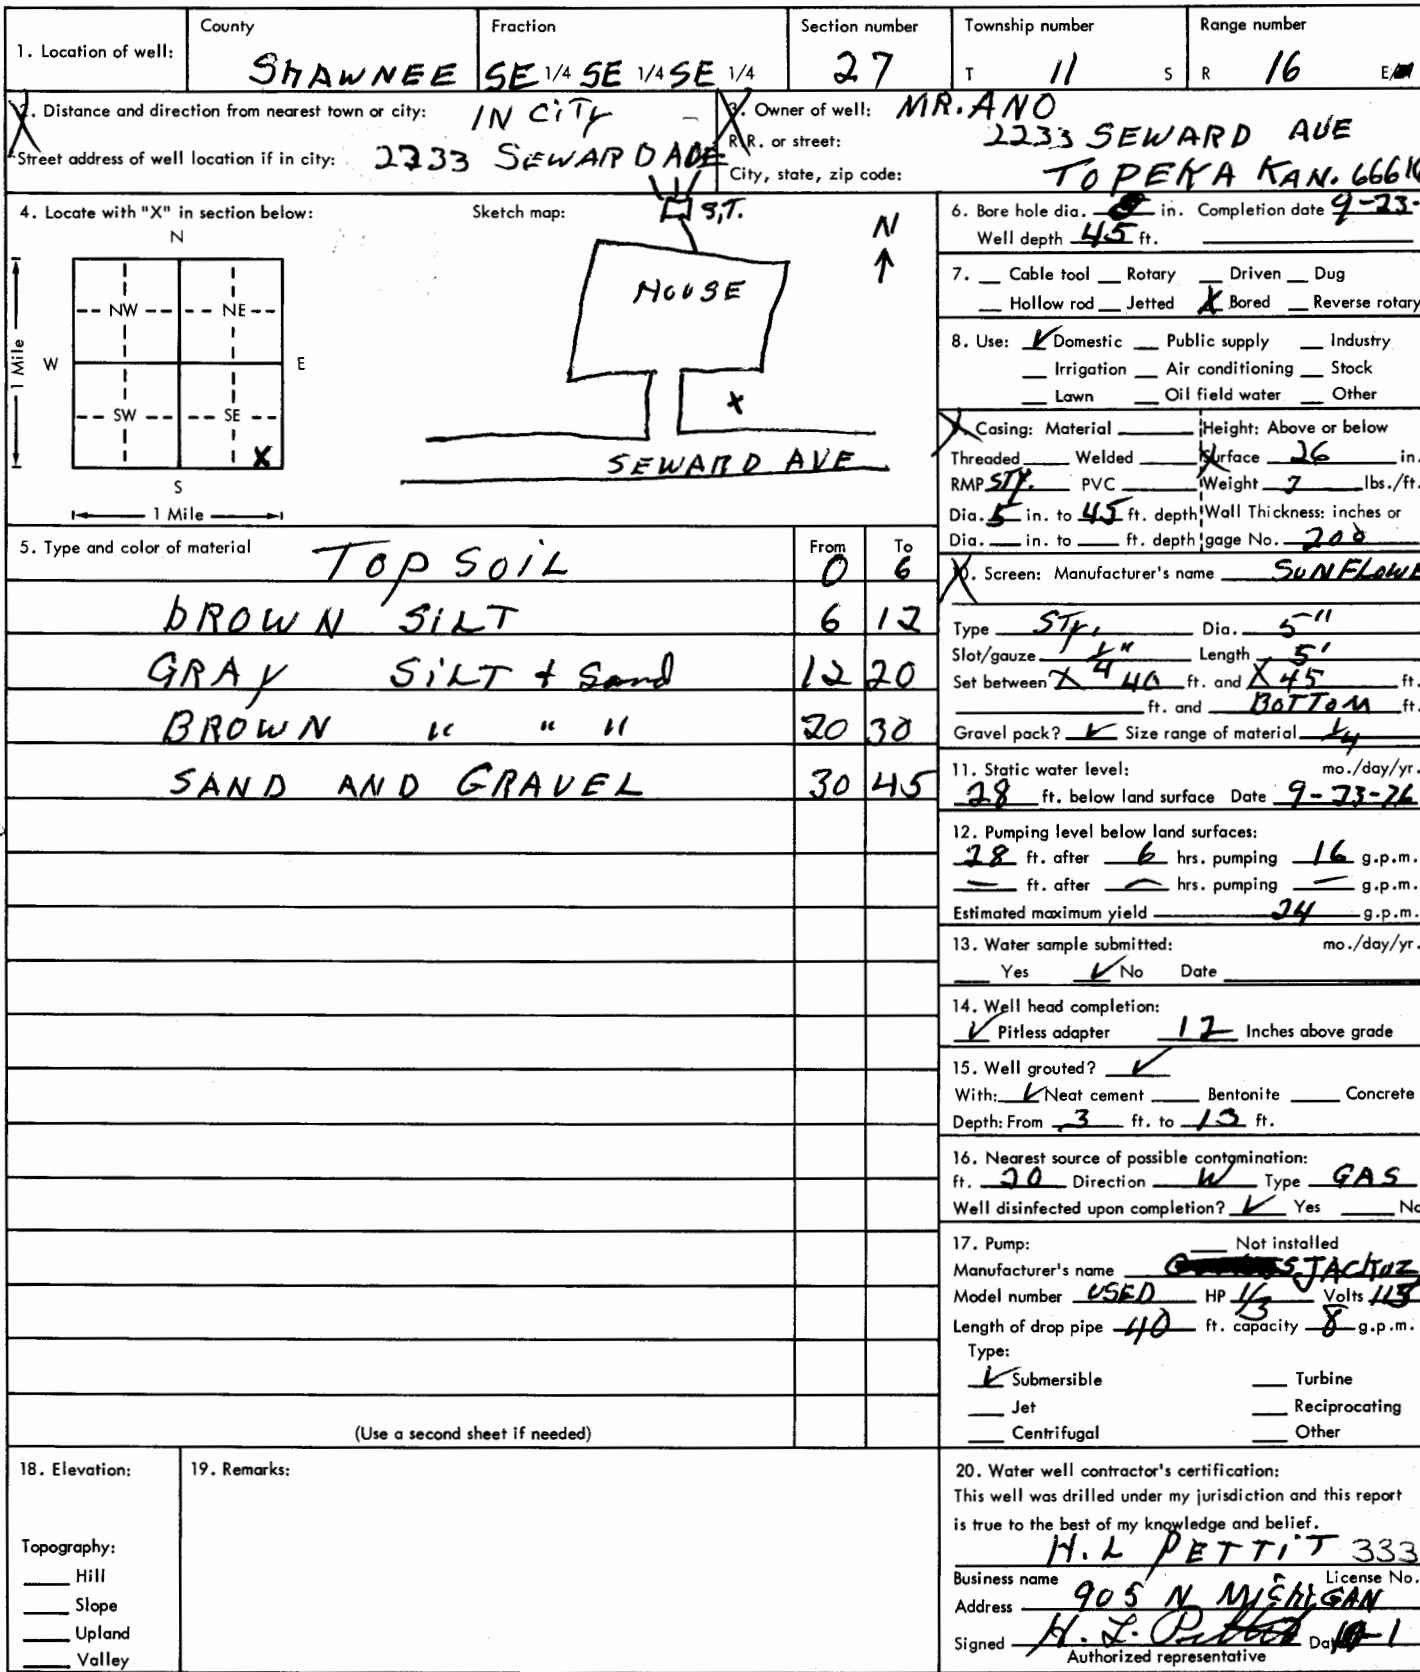 1. Location of well: County SHAWNEE Fraction SE 1/4 SE 1/4 SE 1/4 Section number 27 Township number T 11 S Range number R 16 E/
2. Distance and direction from nearest town or city: IN CITY
Street address of well location if in city: 2233 SEWARD AVE
3. Owner of well: MR. ANO
R.R. or street: 2233 SEWARD AVE
City, state, zip code: TOPEKA KAN. 6661
4. Locate with "X" in section below:
N
NW NE
W E
SW SE
X
S
1 Mile
1 Mile
Sketch map:
S.T.
N
HOUSE
X
SEWARD AVE
5. Type and color of material From To
TOP SOIL 0 6
BROWN SILT 6 12
GRAY SILT + Sand 12 20
BROWN " " " 20 30
SAND AND GRAVEL 30 45
(Use a second sheet if needed)
6. Bore hole dia. in. Completion date 9-23-
Well depth 45 ft.
7. Cable tool Rotary Driven Dug
Hollow rod Jetted X Bored Reverse rotary
8. Use: ✓ Domestic Public supply Industry
Irrigation Air conditioning Stock
Lawn Oil field water Other
9. Casing: Material Height: Above or below
Threaded Welded Surface 26 in.
RMP STY. PVC Weight 7 lbs./ft.
Dia. 5 in. to 45 ft. depth Wall Thickness: inches or
Dia. in. to ft. depth gage No. 200
10. Screen: Manufacturer's name SUNFLOWE
Type STY. Dia. 5"
Slot/gauze 1/4" Length 5'
Set between X 40 ft. and X 45 ft.
ft. and BOTTOM ft.
Gravel pack? ✓ Size range of material 1/4
11. Static water level: mo./day/yr.
28 ft. below land surface Date 9-23-76
12. Pumping level below land surfaces:
28 ft. after 6 hrs. pumping 16 g.p.m.
— ft. after — hrs. pumping — g.p.m.
Estimated maximum yield 24 g.p.m.
13. Water sample submitted: mo./day/yr.
Yes ✓ No Date
14. Well head completion:
✓ Pitless adapter 12 Inches above grade
15. Well grouted? ✓
With: ✓ Neat cement Bentonite Concrete
Depth: From 3 ft. to 13 ft.
16. Nearest source of possible contamination:
ft. 20 Direction W Type GAS
Well disinfected upon completion? ✓ Yes No
17. Pump: Not installed
Manufacturer's name JACKUZ
Model number USED HP 1/3 Volts 115
Length of drop pipe 40 ft. capacity 8 g.p.m.
Type:
✓ Submersible Turbine
Jet Reciprocating
Centrifugal Other
18. Elevation:
Topography:
Hill
Slope
Upland
Valley
19. Remarks:
20. Water well contractor's certification:
This well was drilled under my jurisdiction and this report
is true to the best of my knowledge and belief.
H.L PETTIT 333
Business name License No.
Address 905 N MICHIGAN
Signed H. L. Pettit Da -1
Authorized representative